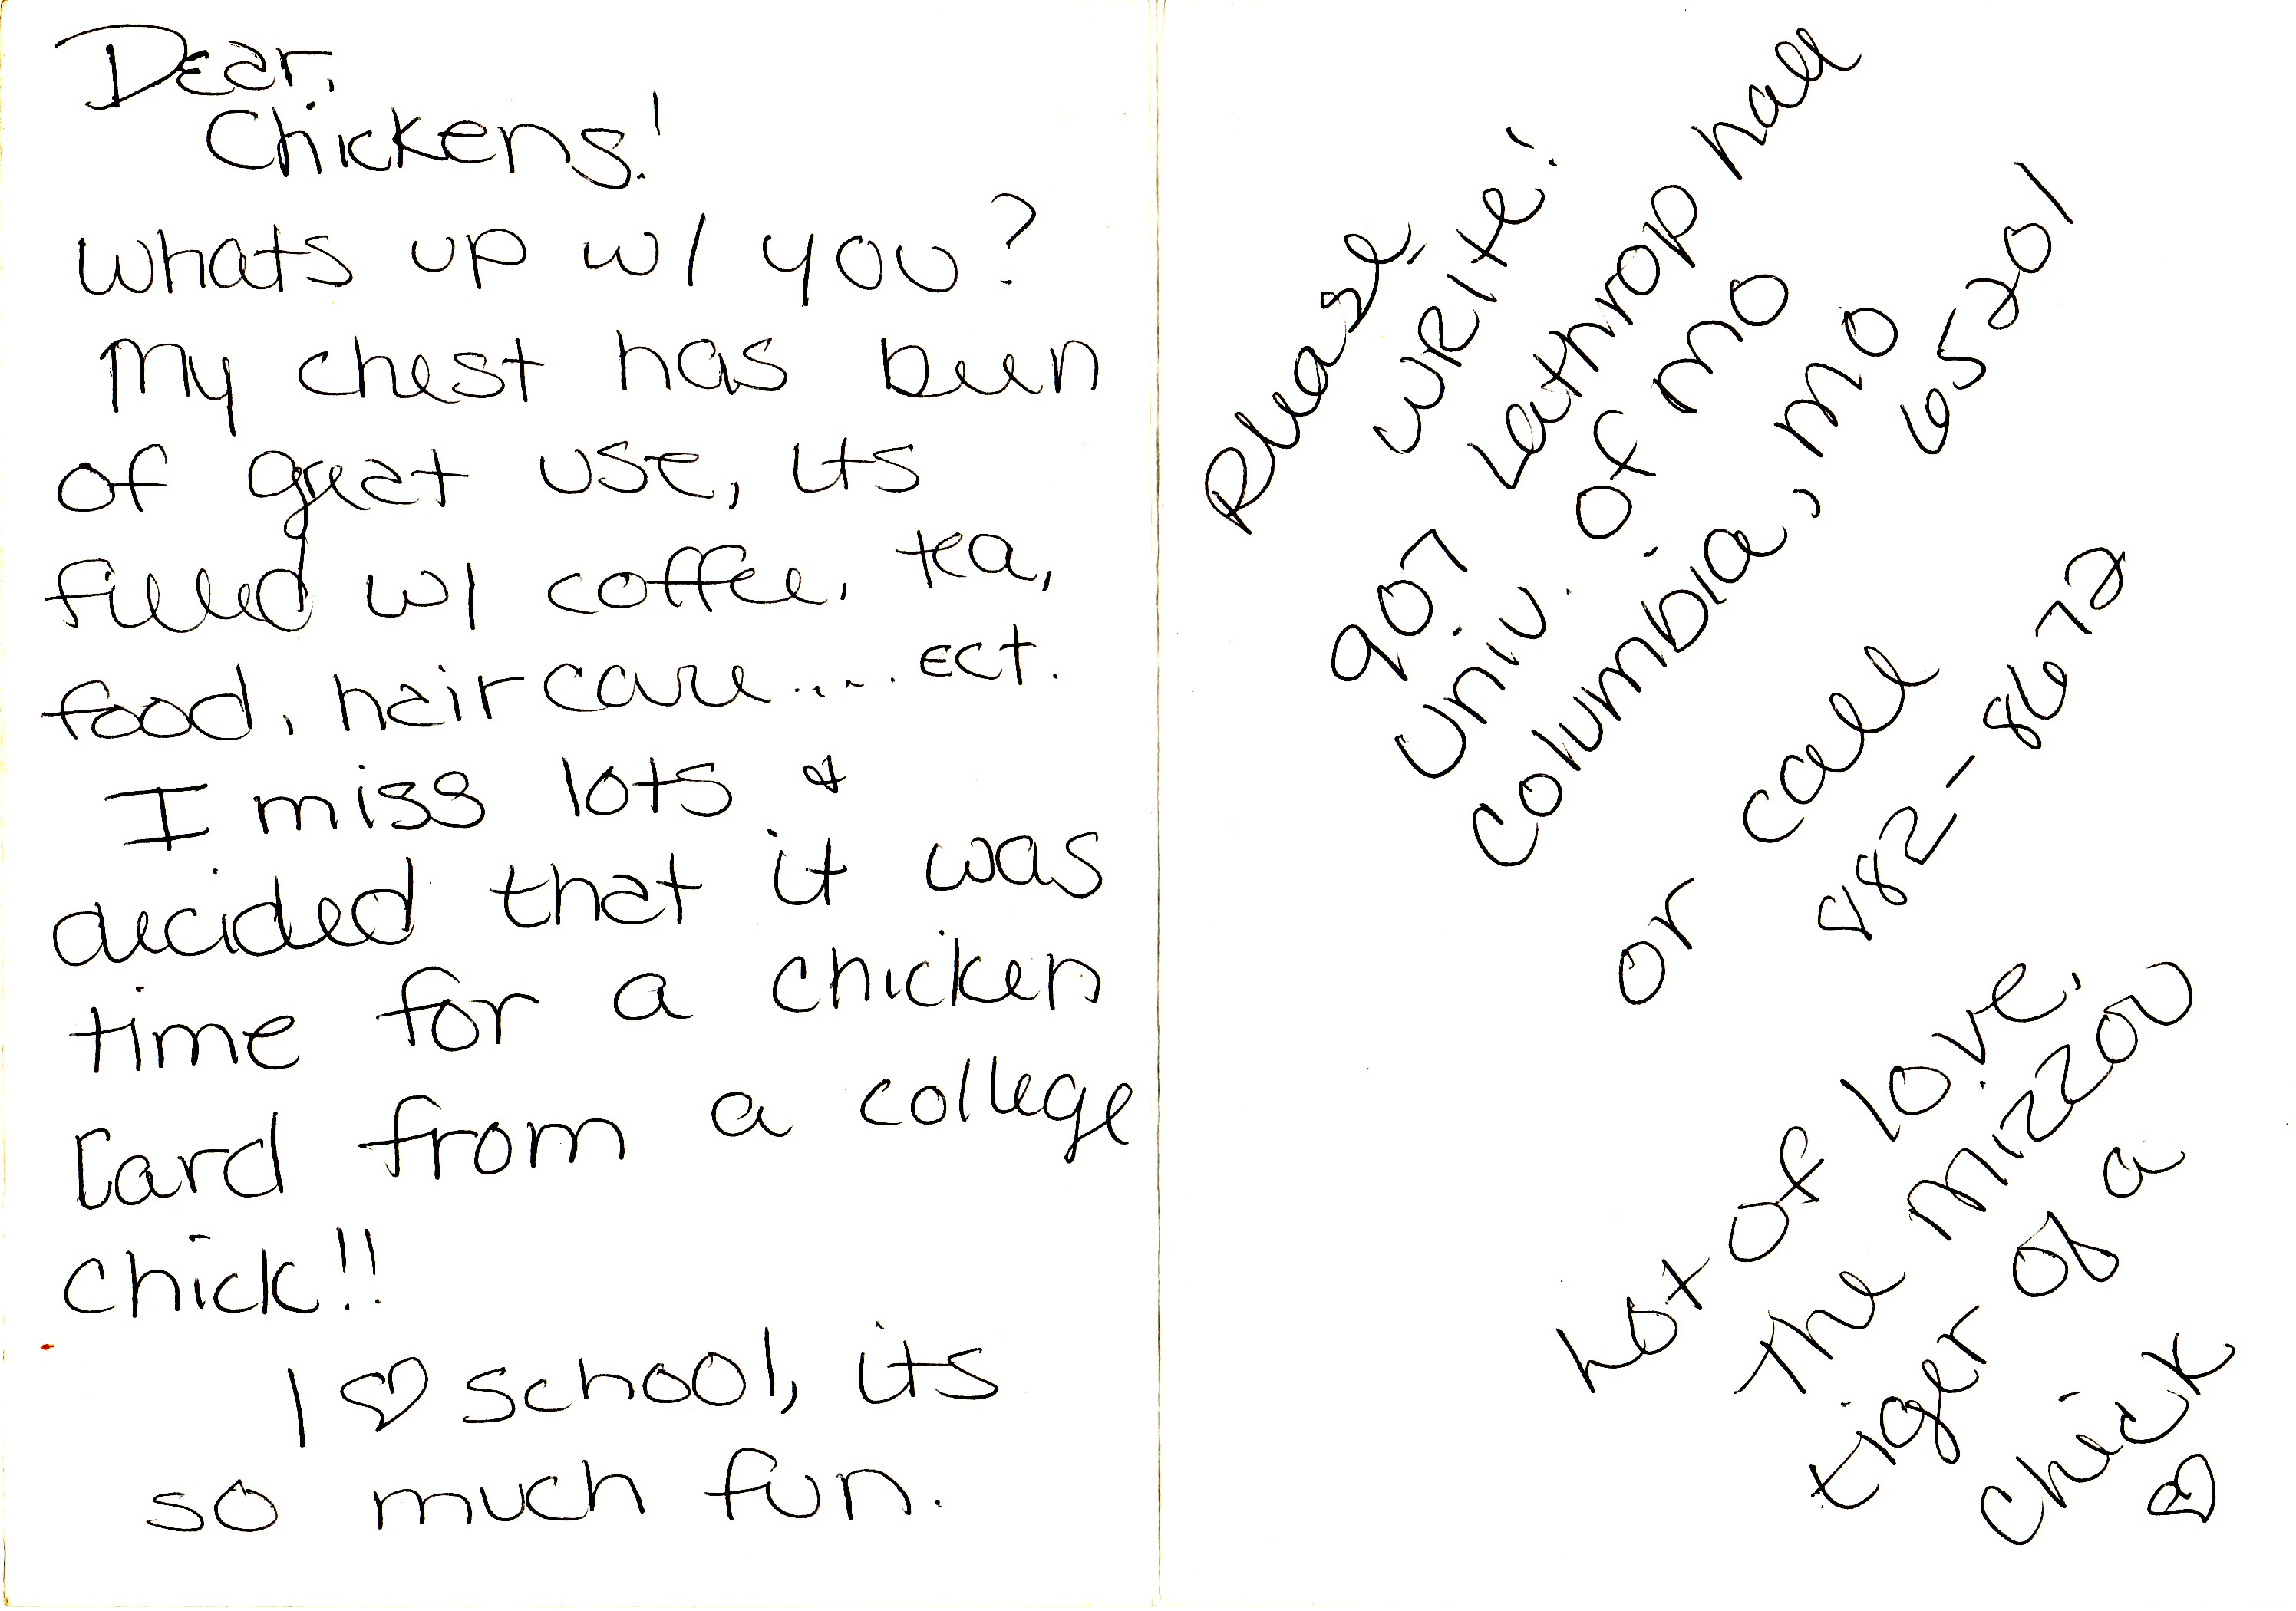 Dear,
Chickens!
whats up w/ you?
My chest has been
of great use, its
filled w/ coffee, tea,
food, hair care..... ect.
I miss lots &
decided that it was
time for a chicken
card from a college
chick!!
I ♡ school, its
so much fun.
Please
WRite!
907 Lathrop hall
Univ. of MO
Columbia, MO
65201
or call
882-8672
Lot of love,
The Mizzou
tiger of a
chick
♡